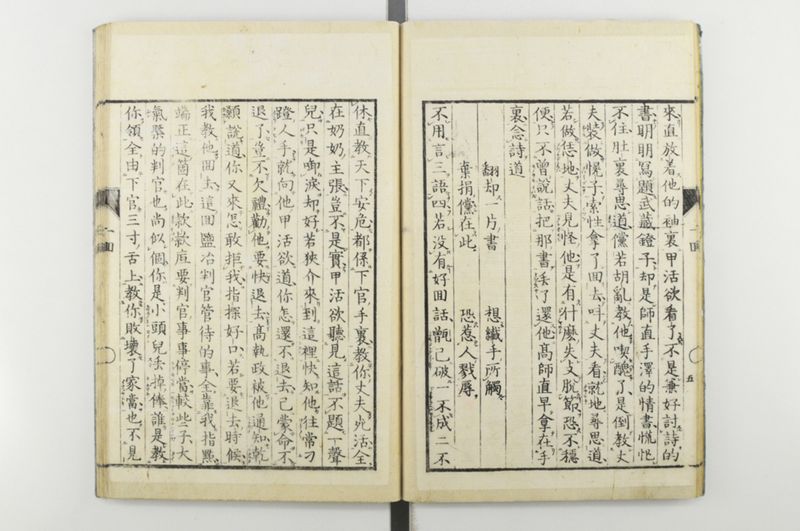 來直放着他的袖裏甲活欲看了不是兼好討詩的
書明明寫題武藏鐙子却是師直手澤的情書慌忙
不住肚裏尋思道儻若胡亂教他喫醜了是倒教丈
夫裝做愰子索性拿了回去叫丈夫看就地尋思道
若做恁地丈夫見怪他是有什麽失支脫節恐不穩
便只不曾說話把那書丟了還他高師直早拿在手
裏念詩道
翻却一片書 想纖手所觸
棄捐儻在此 恐惹人戮辱
不用言三語四若沒有好回話甑已破一不成二不
休直教天下安危都係下官手裏教你丈夫死活全
在奶奶主張豈不是實甲活欲聽見這話不題一聲
兒只是啣淚却好若狹介來到這裡快知他往常刁
蹬人手就向他甲活欲道你怎還不退去已蒙命不
退了豈不欠禮勸他要快退去高執政被他通知乾
顙說道你又來怎敢拒我指探好口若要退去時候
我教他回去這回鹽冶判官管待的事全靠我指點
端正這箇在此款款應要判官事事停當較些子大
氣槩的判官也尚似個你是小頭兒丟掉俸誰是教
你領全由下官三寸舌上教你敗壞了家當也不見
五